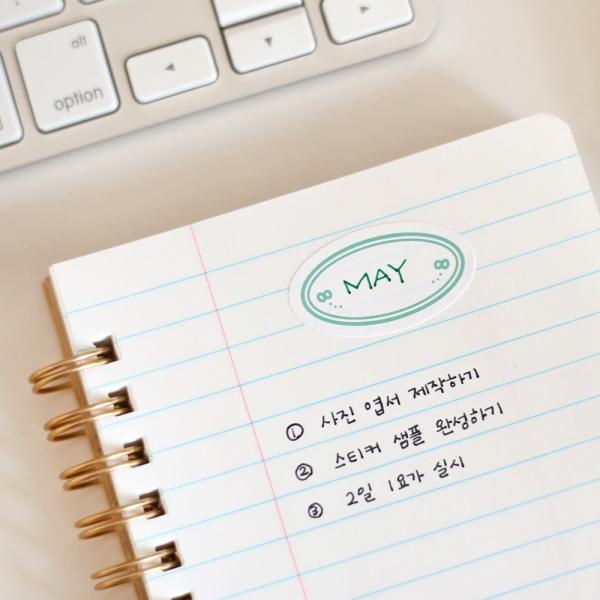 alt
option
MAY
① 사진 엽서 제작하기
② 스티커 샘플 완성하기
③ 2일 1요가 실시